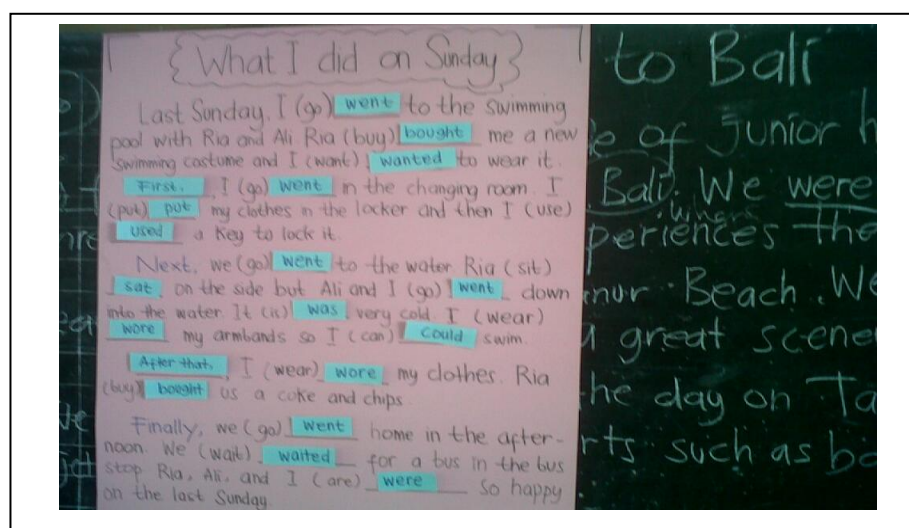 What I did on Sunday
Last Sunday, I (go) went to the swimming
pool with Ria and Ali Ria (buy) bought me a new
swimming costume and I (want) wanted to wear it.
First, I (go) went in the changing room. I
(put) put my clothes in the locker and then I (use)
used a key to lock it.
Next, we (go) went to the water Ria (sit)
sat, on the side but Ali and I (go) went down
into the water. It (is) was very cold. I (wear)
wore my armbands so I (can) could swim.
After that, I (wear) wore my clothes. Ria
(buy) bought us a coke and chips.
Finally, we (go) went home in the after-
noon. We (wait) waited for a bus in the bus
stop Ria, Ali, and I (are) were so happy
on the last Sunday.
to Bali
of junior
Bali. We were
where
periences the
nur Beach. We
a great scene
he day on Ta
rts such as bo